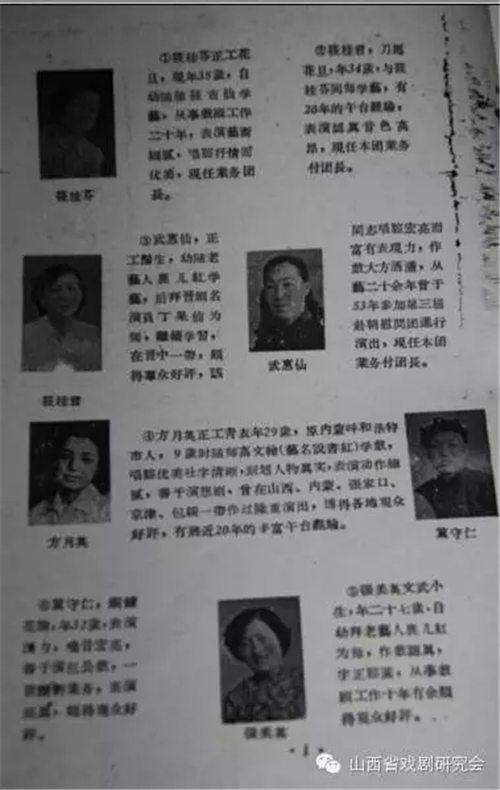 ①筱桂芬正工花
旦，現年35歲，自
幼随筱吉仙学
藝，从事戲剧工作
二十年，表演藝術
細膩，唱腔抒情而
优美，現任業务团
長。
筱桂芬
②筱桂君，刀馬
花旦，年34歲，与筱
桂芬同师学藝，有
20年的午台經驗，
表演認真音色高
昂，現任本团業务
付团長。
筱桂君
③武惠仙，正
工鬚生，幼随老
藝人鹿儿紅学
藝，后拜晋剧名
演員丁果仙为
师，繼續学習，
在晋中一帶，頗
得羣众好評，該
武惠仙
同志唱腔宏亮而
富有表現力，作
戲大方洒灑，从
藝二十余年曾于
53年参加第三屆
赴朝慰問团進行
演出，現任本团
業务付团長。
④方月英正工青衣年29歲，原內蒙呼和浩特
市人，9歲时随师高文翰（藝名說書紅）学戲，
唱腔优美吐字清晰，刻划人物真实，表演动作細
膩，善于演悲剧、曾在山西、內蒙、張家口、
京津、包頭一帶作过隆重演出，博得各地观众
好評，有將近20年的丰富午台經驗。
方月英
冀守仁
⑤張美英文武小
生，年二十七歲，自
幼拜老藝人鹿儿紅
为师，作戲
字正腔
剧工作十年有余頗
得观众好評。
張美英
⑥冀守仁，銅錘
花臉，年32歲，表演
潑力，嗓音宏亮，
善于演包公戲，一
貫 業务，表演
頗得观众好
評。
·1·
山西省戏剧研究会